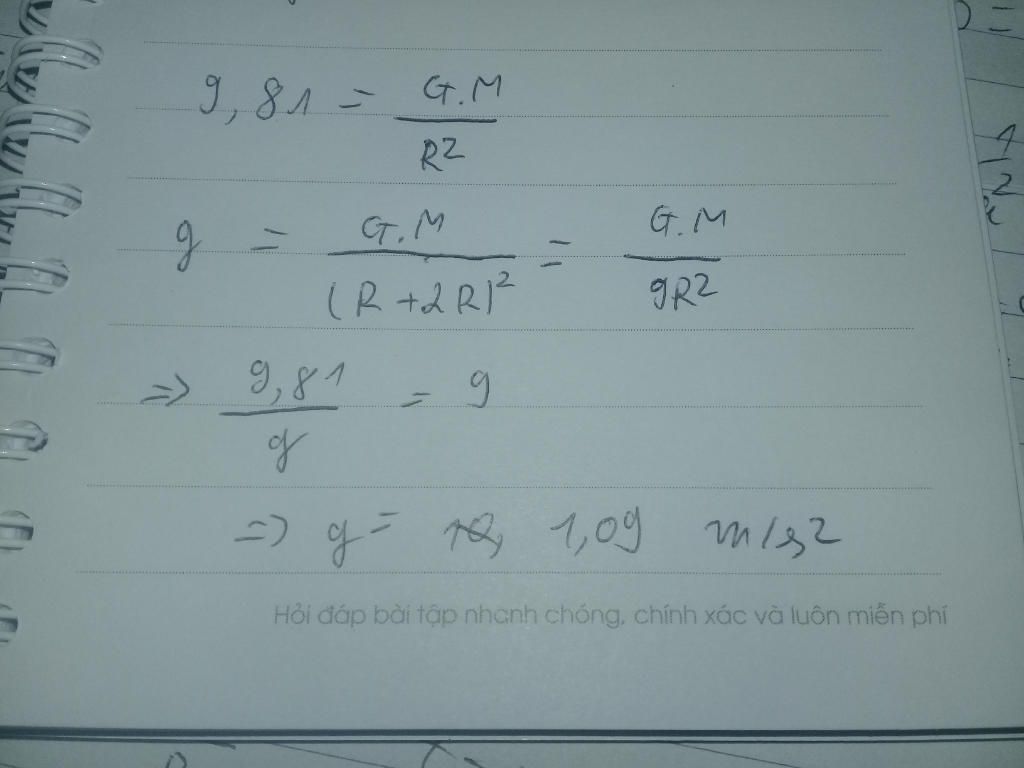 9,81 = G.M / R²
g = G.M / (R + 2R)² = G.M / 9R²
=> 9,81 / g = 9
=> g = 1,09 m/s²
Hỏi đáp bài tập nhanh chóng, chính xác và luôn miễn phí